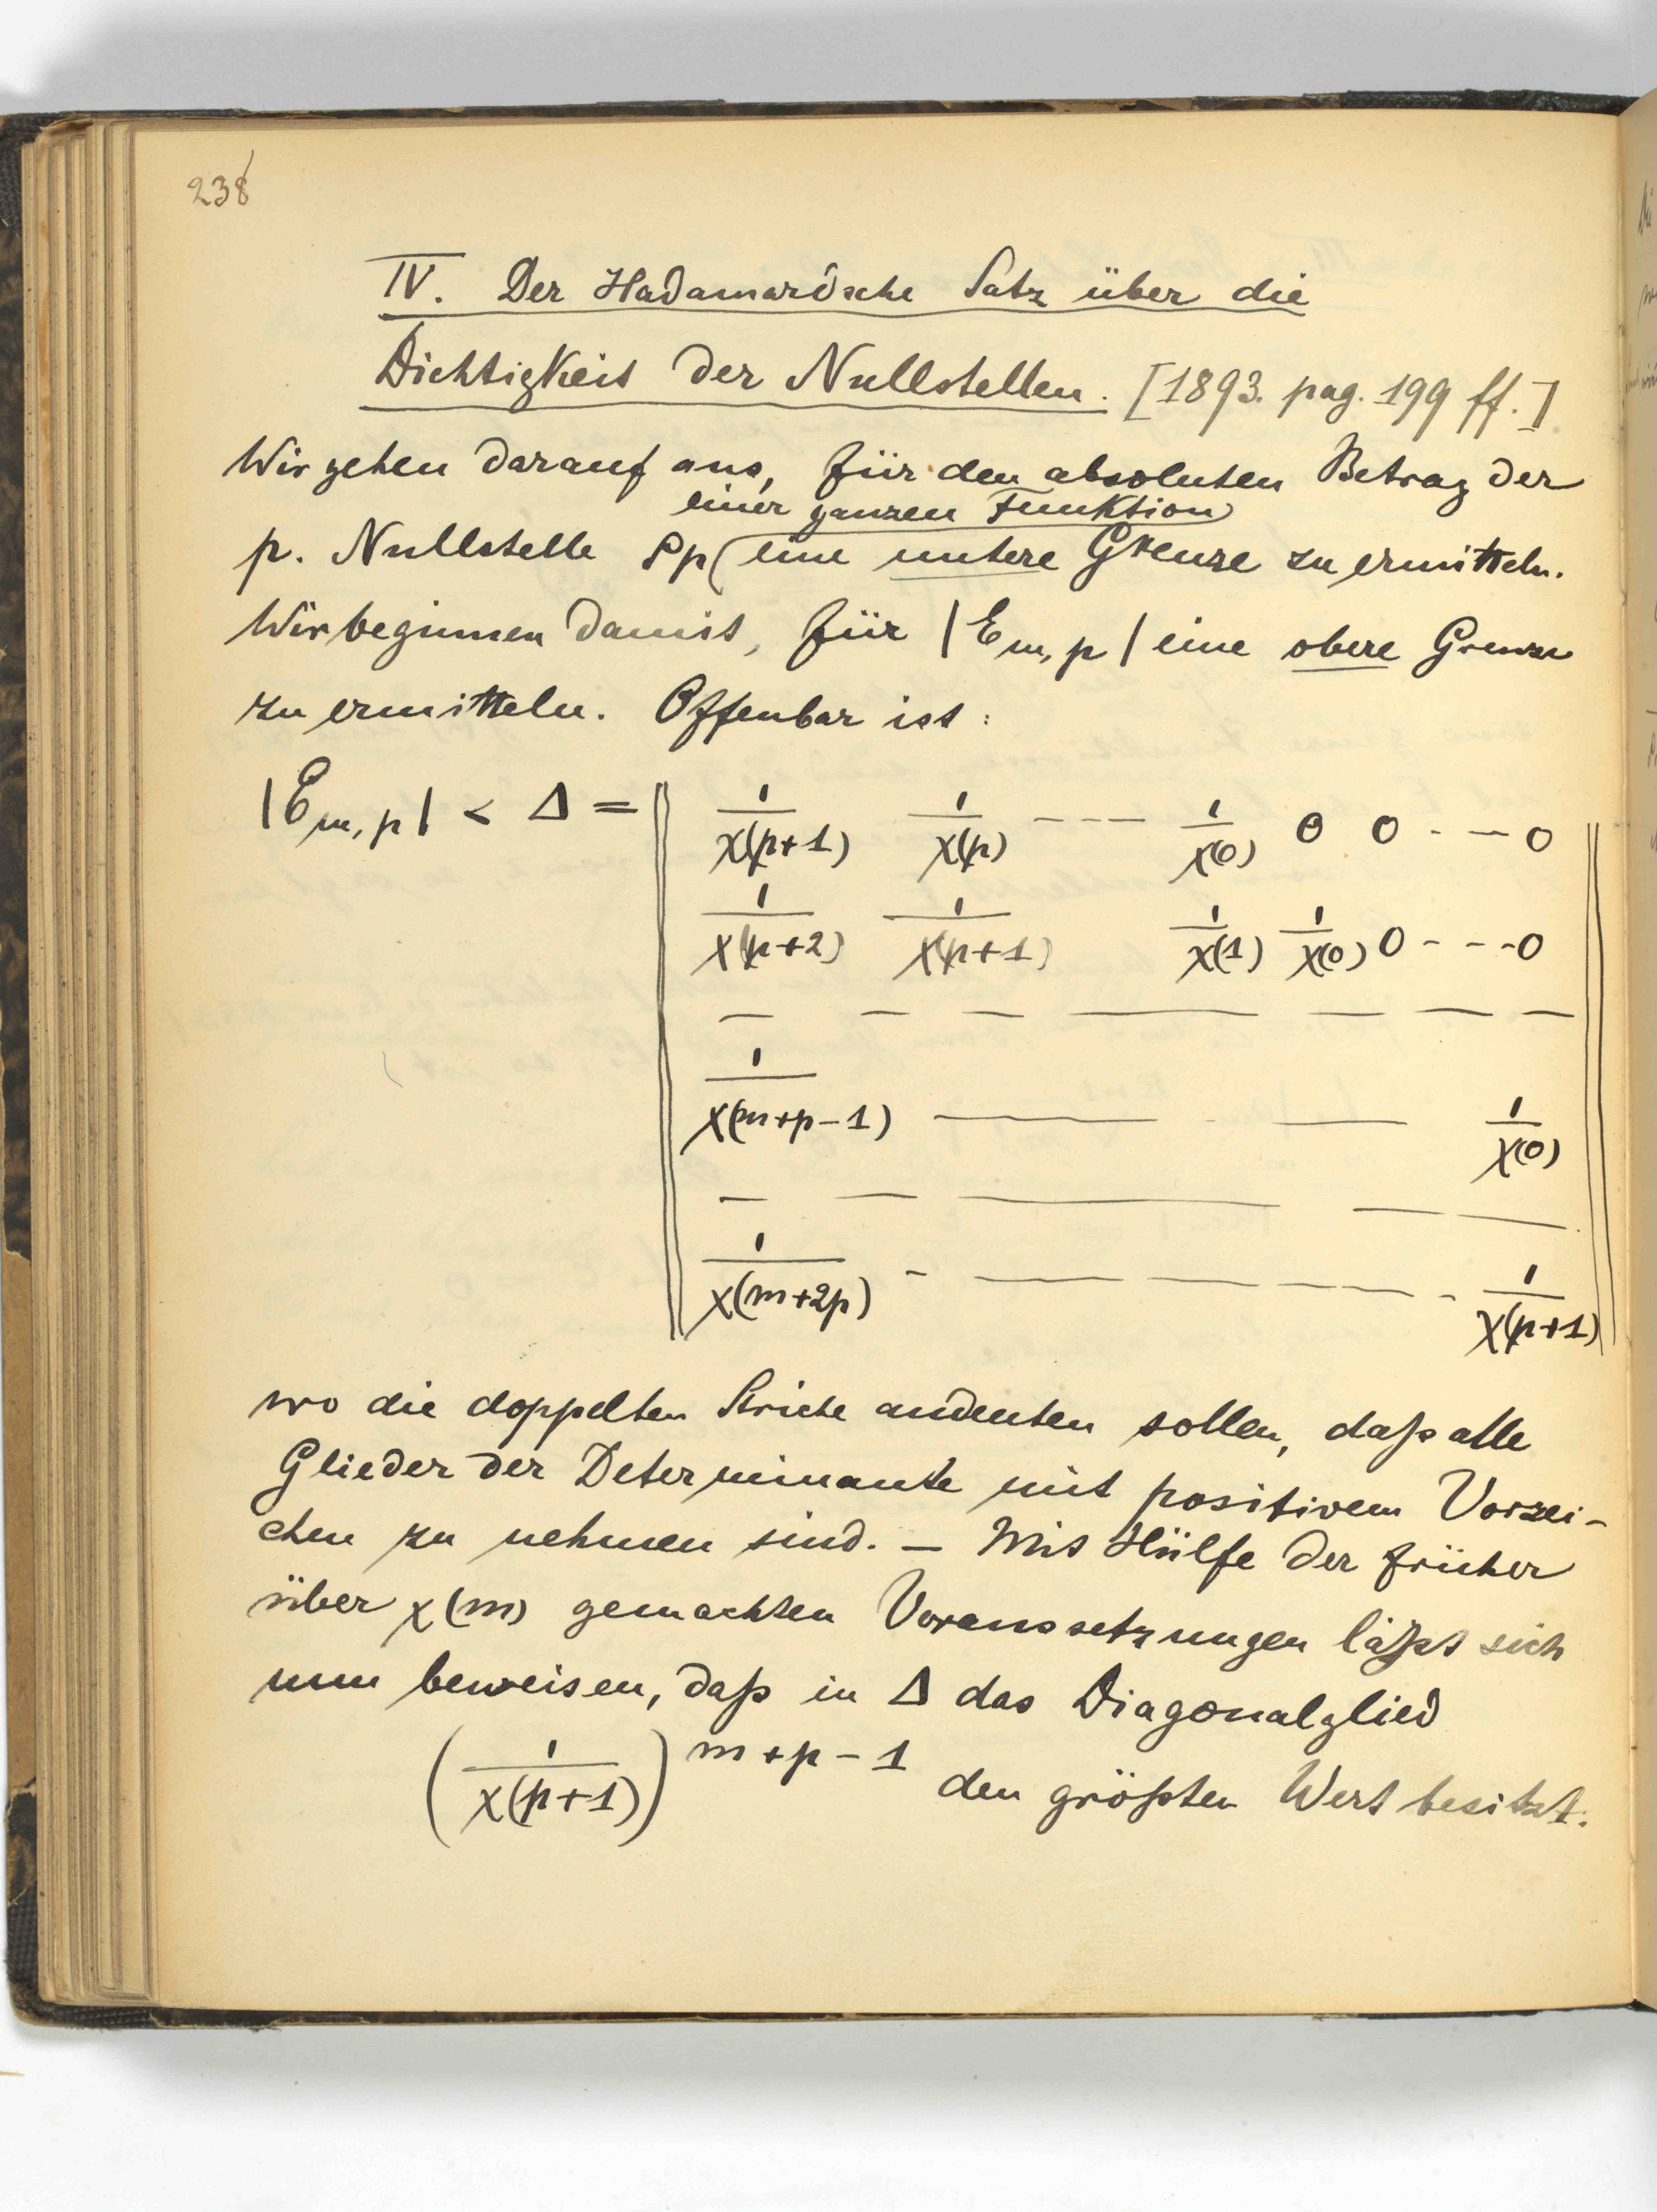 238
IV. Der Hadamardsche Satz über die
Dichtigkeit der Nullstellen. [1893. pag. 199 ff.]
Wir gehen darauf aus, für den absoluten Betrag der
einer ganzen Funktion
p. Nullstelle ρp eine untere Grenze zu ermitteln.
Wir beginnen damit, für |Em,p| eine obere Grenze
zu ermitteln. Offenbar ist:
|Em,p| < Δ = || 1/χ(p+1) 1/χ(p) --- 1/χ(0) 0 0 - -- 0 ||
1/χ(p+2) 1/χ(p+1) 1/χ(1) 1/χ(0) 0 - - - 0
— — — — — — —
1/χ(m+p-1) — - — 1/χ(0)
— — — — —
1/χ(m+2p) - — — — - 1/χ(p+1)
wo die doppelten Striche andeuten sollen, daß alle
Glieder der Determinante mit positivem Vorzei-
chen zu nehmen sind. — Mit Hülfe der früher
über χ(m) gemachten Voraussetzungen läßt sich
nun beweisen, daß in Δ das Diagonalglied
(1/χ(p+1))^{m+p-1} den größten Wert besitzt.